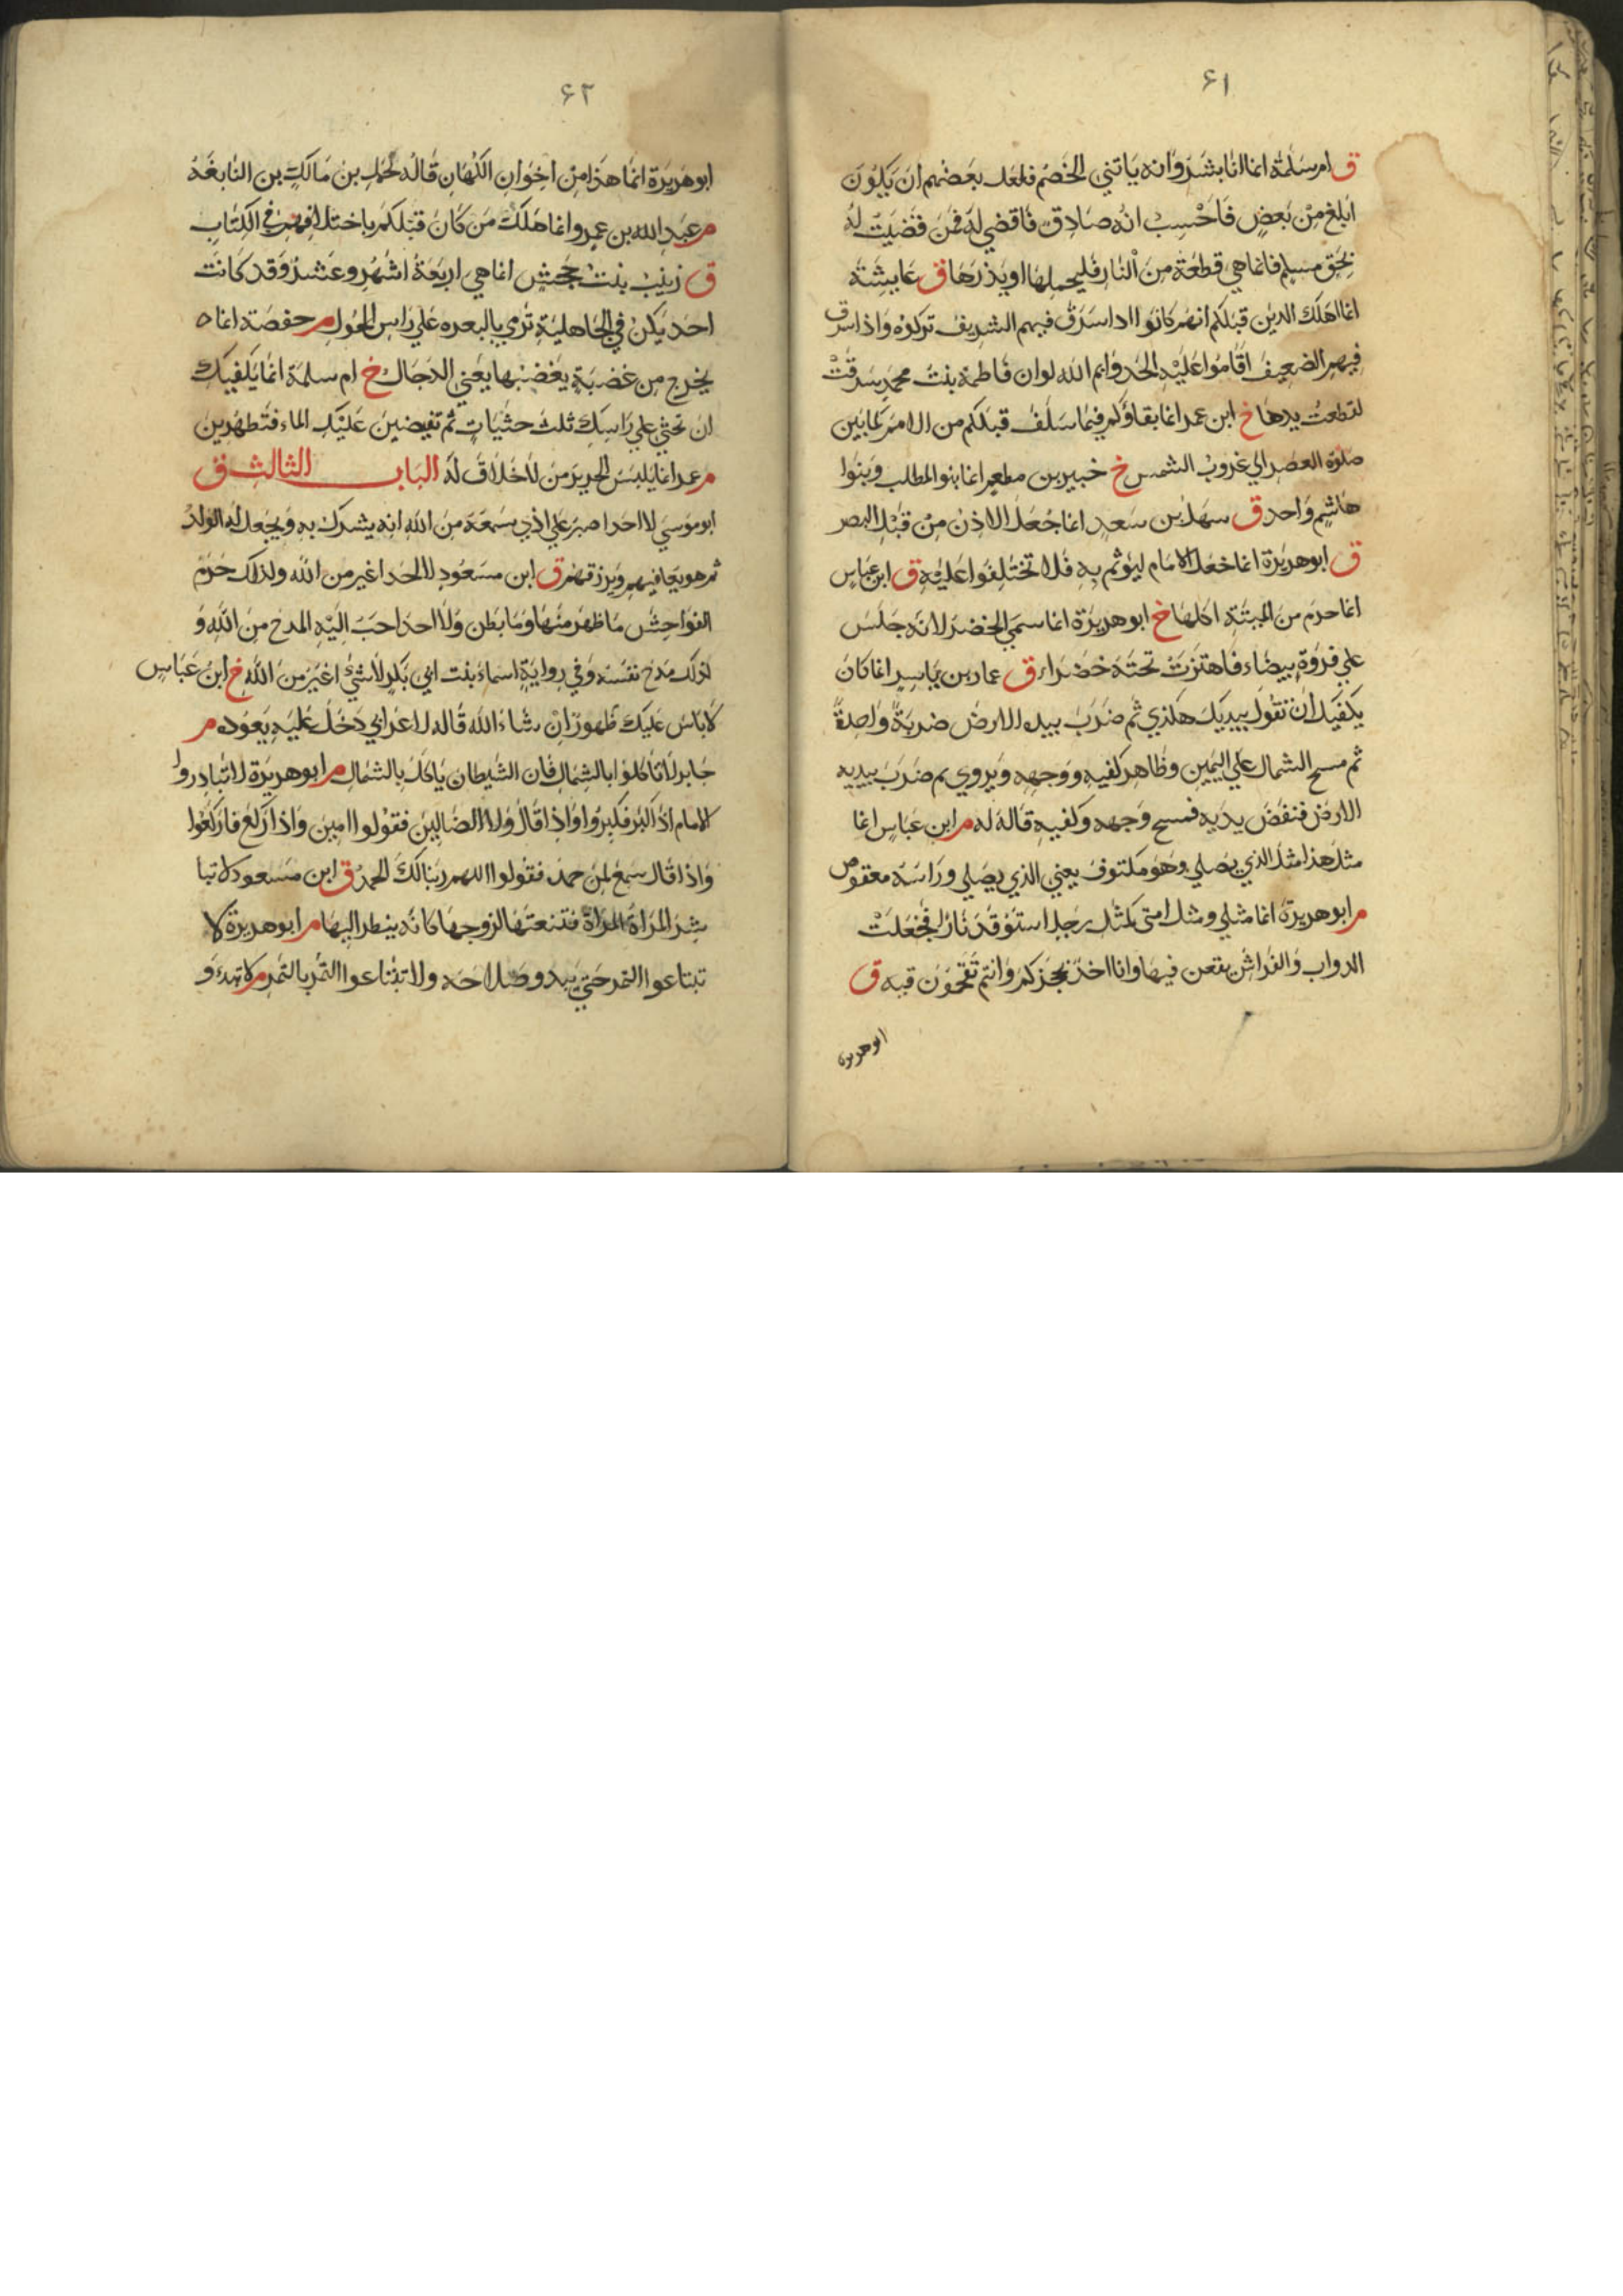 ٦١
ق ام سلمة انما انا بشر وانه ياتني الخصم فلعل بعضهم ان يكون
ابلغ من بعض فاحسب انه صادق فاقضي له فمن قضيت له
بحق مسلم فانما هي قطعة من النار فليحملها او يذرها ق عايشة
انما اهلك الدين قبلكم انهم كانوا ادا سرق فيهم الشريف تركوه واذا سرق
فيهم الضعيف اقاموا عليه الحد وايم الله لو ان فاطمة بنت محمد سرقت
لقطعت يدها خ ابن عمر انما بقاؤكم فيما سلف قبلكم من الامم كما بين
صلوة العصر الي غروب الشمس خ خبير بن مطعم انما بنوا المطلب وبنوا
هاشم واحد ق سهل بن سعد انما جعل الاذن من قبل البصر
ق ابو هريرة انما جعل الامام ليؤتم به فلا تختلفوا عليه ق ابن عباس
انما حرم من الميتة اكلها خ ابو هريرة انما سمي الخضر لانه جلس
علي فروة بيضاء فاهتزت تحته خضراء ق عمار بن ياسر انما كان
يكفيك ان تقول بيديك هكذي ثم ضرب بيده الارض ضربة واحدة
ثم مسح الشمال علي اليمين وظاهر كفيه ووجهه ويروي ثم ضرب بيديه
الارض فنفض يديه فمسح وجهه وكفيه قاله له م ابن عباس انما
مثل هذا مثل الذي يصلي وهو مكتوف يعني الذي يصلي وراسه معقوص
م ابو هريرة انما مثلي ومثل امتي كمثل رجل استوقد نارا فجعلت
الدواب والفراش يقعن فيها وانا اخذ بحجزكم وانتم تقحمون فيه ق
ابو هريرة
٦٢
ابو هريرة انما هذا من اخوان الكهان قاله لحمل بن مالك بن النابغة
م عبد الله بن عمرو انما هلك من كان قبلكم باختلافهم في الكتاب
ق زينب بنت جحش انما هي اربعة اشهر وعشر وقد كانت
احديكن في الجاهلية ترمي بالبعره علي راس الحول م حفصة انما
يخرج من غضبة يغضبها يعني الدجال خ ام سلمة انما يكفيك
ان تحثي علي راسك ثلث حثيات ثم تفيضين عليك الماء فتطهرين
م عمر انما يلبس الحرير من لا خلاق له الباب الثالث ق
ابو موسي لا احد اصبر علي اذي يسمعه من الله انه يشرك به ويجعل له الولد
ثم هو يعافيهم ويرزقهم ق ابن مسعود لا احد اغير من الله ولذلك حرم
الفواحش ما ظهر منها وما بطن ولا احد احب اليه المدح من الله و
لذلك مدح نفسه وفي رواية اسماء بنت ابي بكر لا شيء اغير من الله خ ابن عباس
لا باس عليك طهور ان شاء الله قاله لاعرابي دخل عليه يعوده م
جابر لا تاكلوا بالشمال فان الشيطان ياكل بالشمال م ابو هريرة لا تبادروا
الامام اذا كبر فكبروا واذا قال ولا الضالين فقولوا امين واذا ركع فاركعوا
واذا قال سمع لمن حمده فقولوا اللهم ربنا لك الحمد ق ابن مسعود لا تبا
شر المراة المراة فتنعتها لزوجها كانه ينظر اليها م ابو هريرة لا
تبتاعوا الثمر حتي يبدو صلاحه ولا تبتاعوا الثمر بالتمر م لا تبدؤ